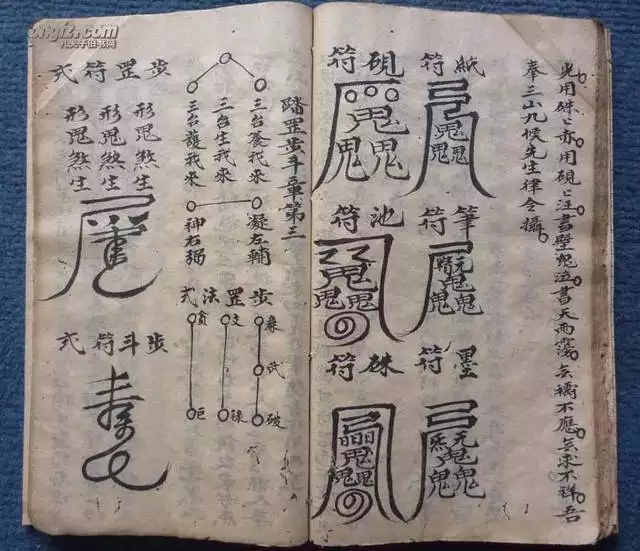 光用硃〻亦用硯〻注書壁鬼泣書天雨霧無禱不應無求不祥吾
奉三山九侯先生律令攝
紙符
硯符
筆符
池符
墨符
硃符
踏罡步斗章第三
三台養我來
三台生我來
三台護我來
凝左輔
神右弼
步罡法式
廉
武
破
文
祿
貪
巨
步罡符式
形鬼煞生
形鬼煞生
形鬼煞生
步斗符式
ongfz.com
孔夫子旧书网